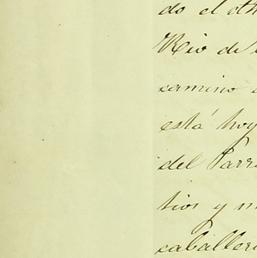 do el oth
Rio de
camino
está hoy
del Parr
tios y m
caballeri